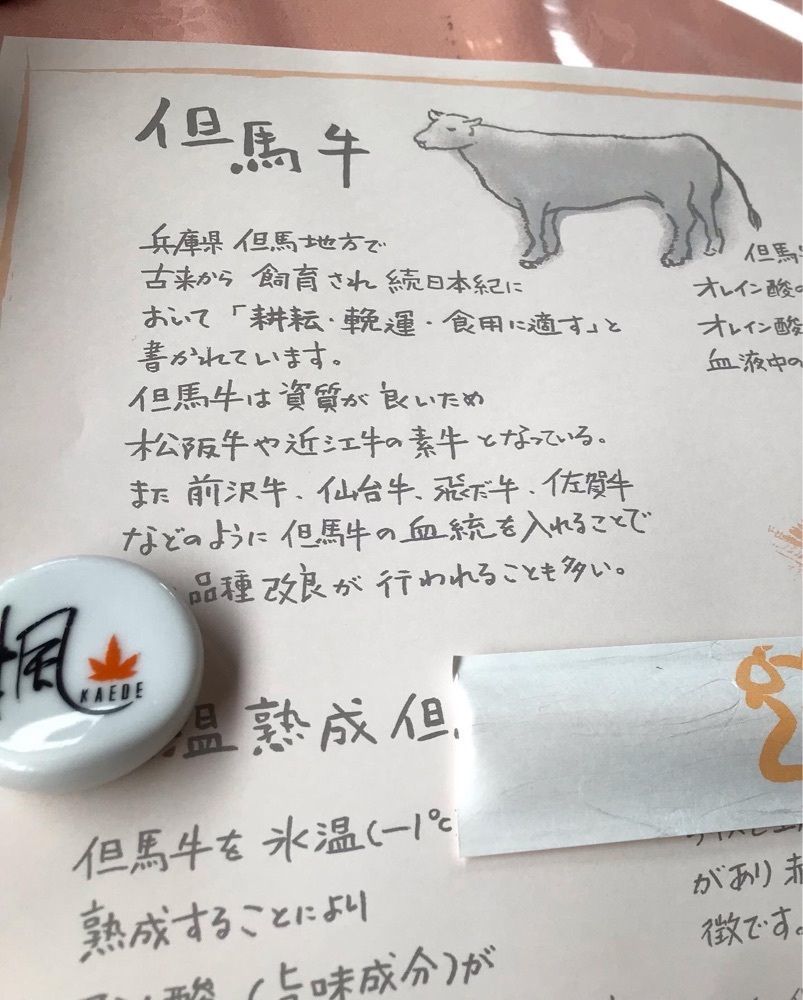 但馬牛
兵庫県 但馬地方で
古来から 飼育され 続日本紀に
おいて「耕耘・輓運・食用に適す」と
書かれています。
但馬牛は資質が良いため
松阪牛や近江牛の素牛となっている。
また 前沢牛、仙台牛、飛だ牛、佐賀牛
などのように 但馬牛の血統を入れることで
品種改良が 行われることも多い。
但馬
オレイン酸の
オレイン酸
血液中の
楓
KAEDE
温熟成但
但馬牛を 氷温(-1℃
熟成することにより
酸 (旨味成分)が
があり 赤
徴です。